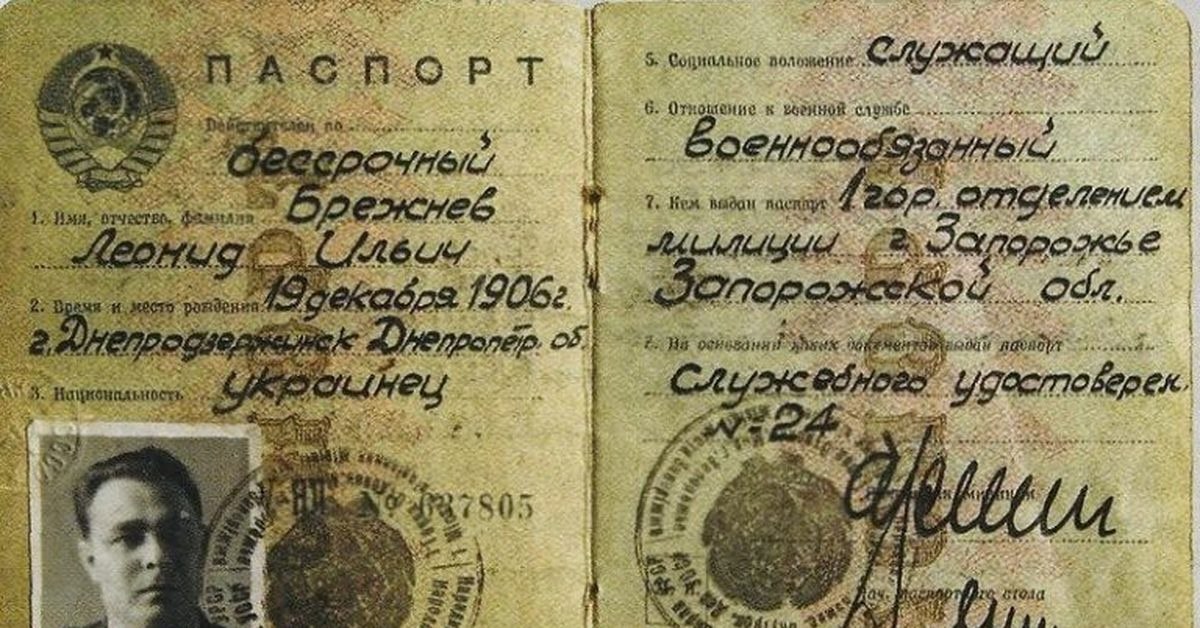 ПАСПОРТ
Действителен по
бессрочный
1. Имя, отчество, фамилия Брежнев
Леонид Ильич
2. Время и место рождения 19 декабря 1906 г.
г. Днепродзержинск Днепропетр. об.
3. Национальность украинец
№ 637805
5. Социальное положение служащий
6. Отношение к военной службе
военнообязанный
7. Кем выдан паспорт 1 гор. отделением
милиции г. Запорожье
Запорожской обл.
8. На основании каких документов выдан паспорт
Служебного удостоверен.
N-24
Нач. паспортного стола